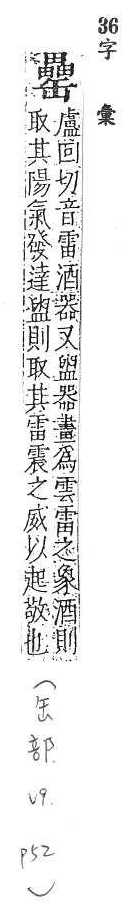 36
字彙
罍
盧回切音雷酒器又盥器畫為雲雷之象酒則
取其陽氣發達盥則取其雷震之威以起敬也
(缶部 v9. p52)